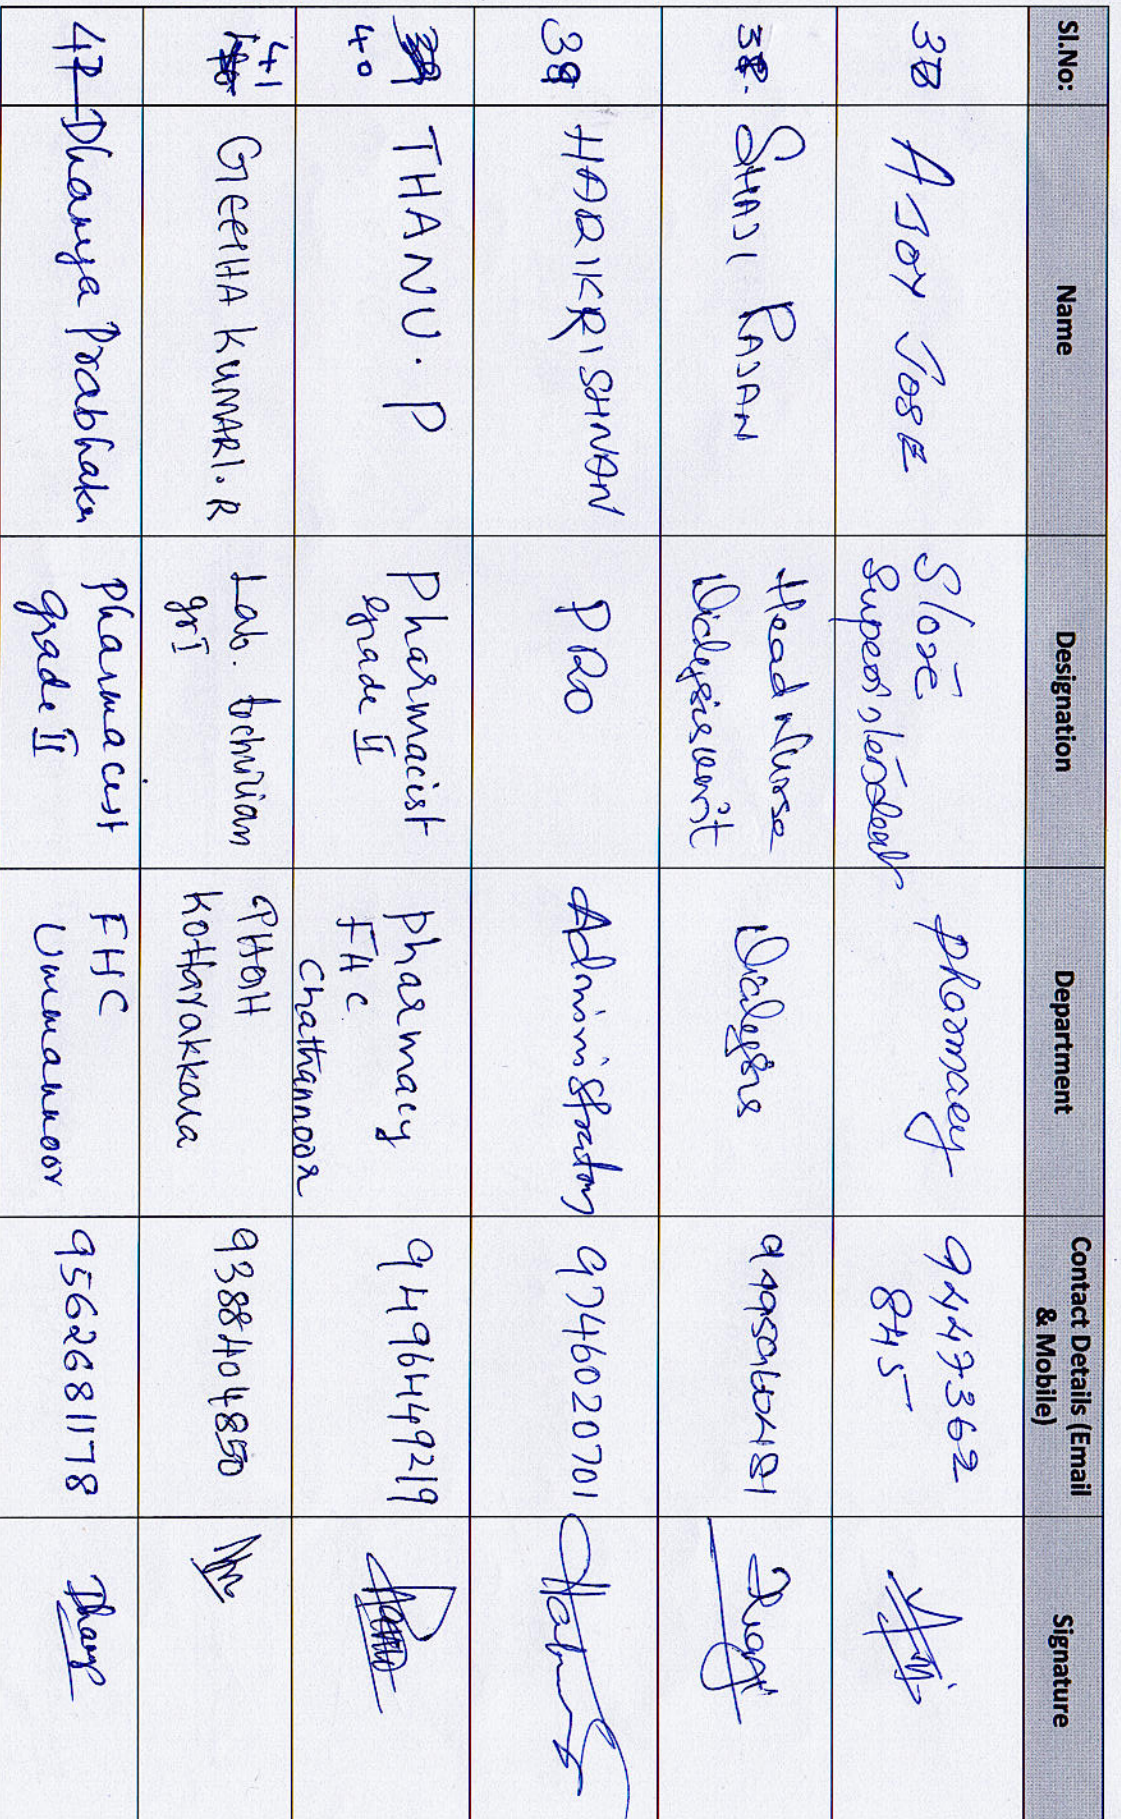 Sl.No: Name Designation Department Contact Details (Email & Mobile) Signature
AJOY JOSE Store Superintendent Pharmacy 9447362 845
38. SHAJI RAJAN Head Nurse Dialysis unit Dialysis
39 HARIKRISHNAN PRO Administration 9746020701
40 THANU. P Pharmacist grade II pharmacy FHC Chathannoor 9496449219
41 GEETHA KUMARI. R Lab. technician gr I Kottarakkara 9388404850
42 Dhanya Prabhakar Pharmacist grade II FHC Ummannoor 9562681178 Dhanya